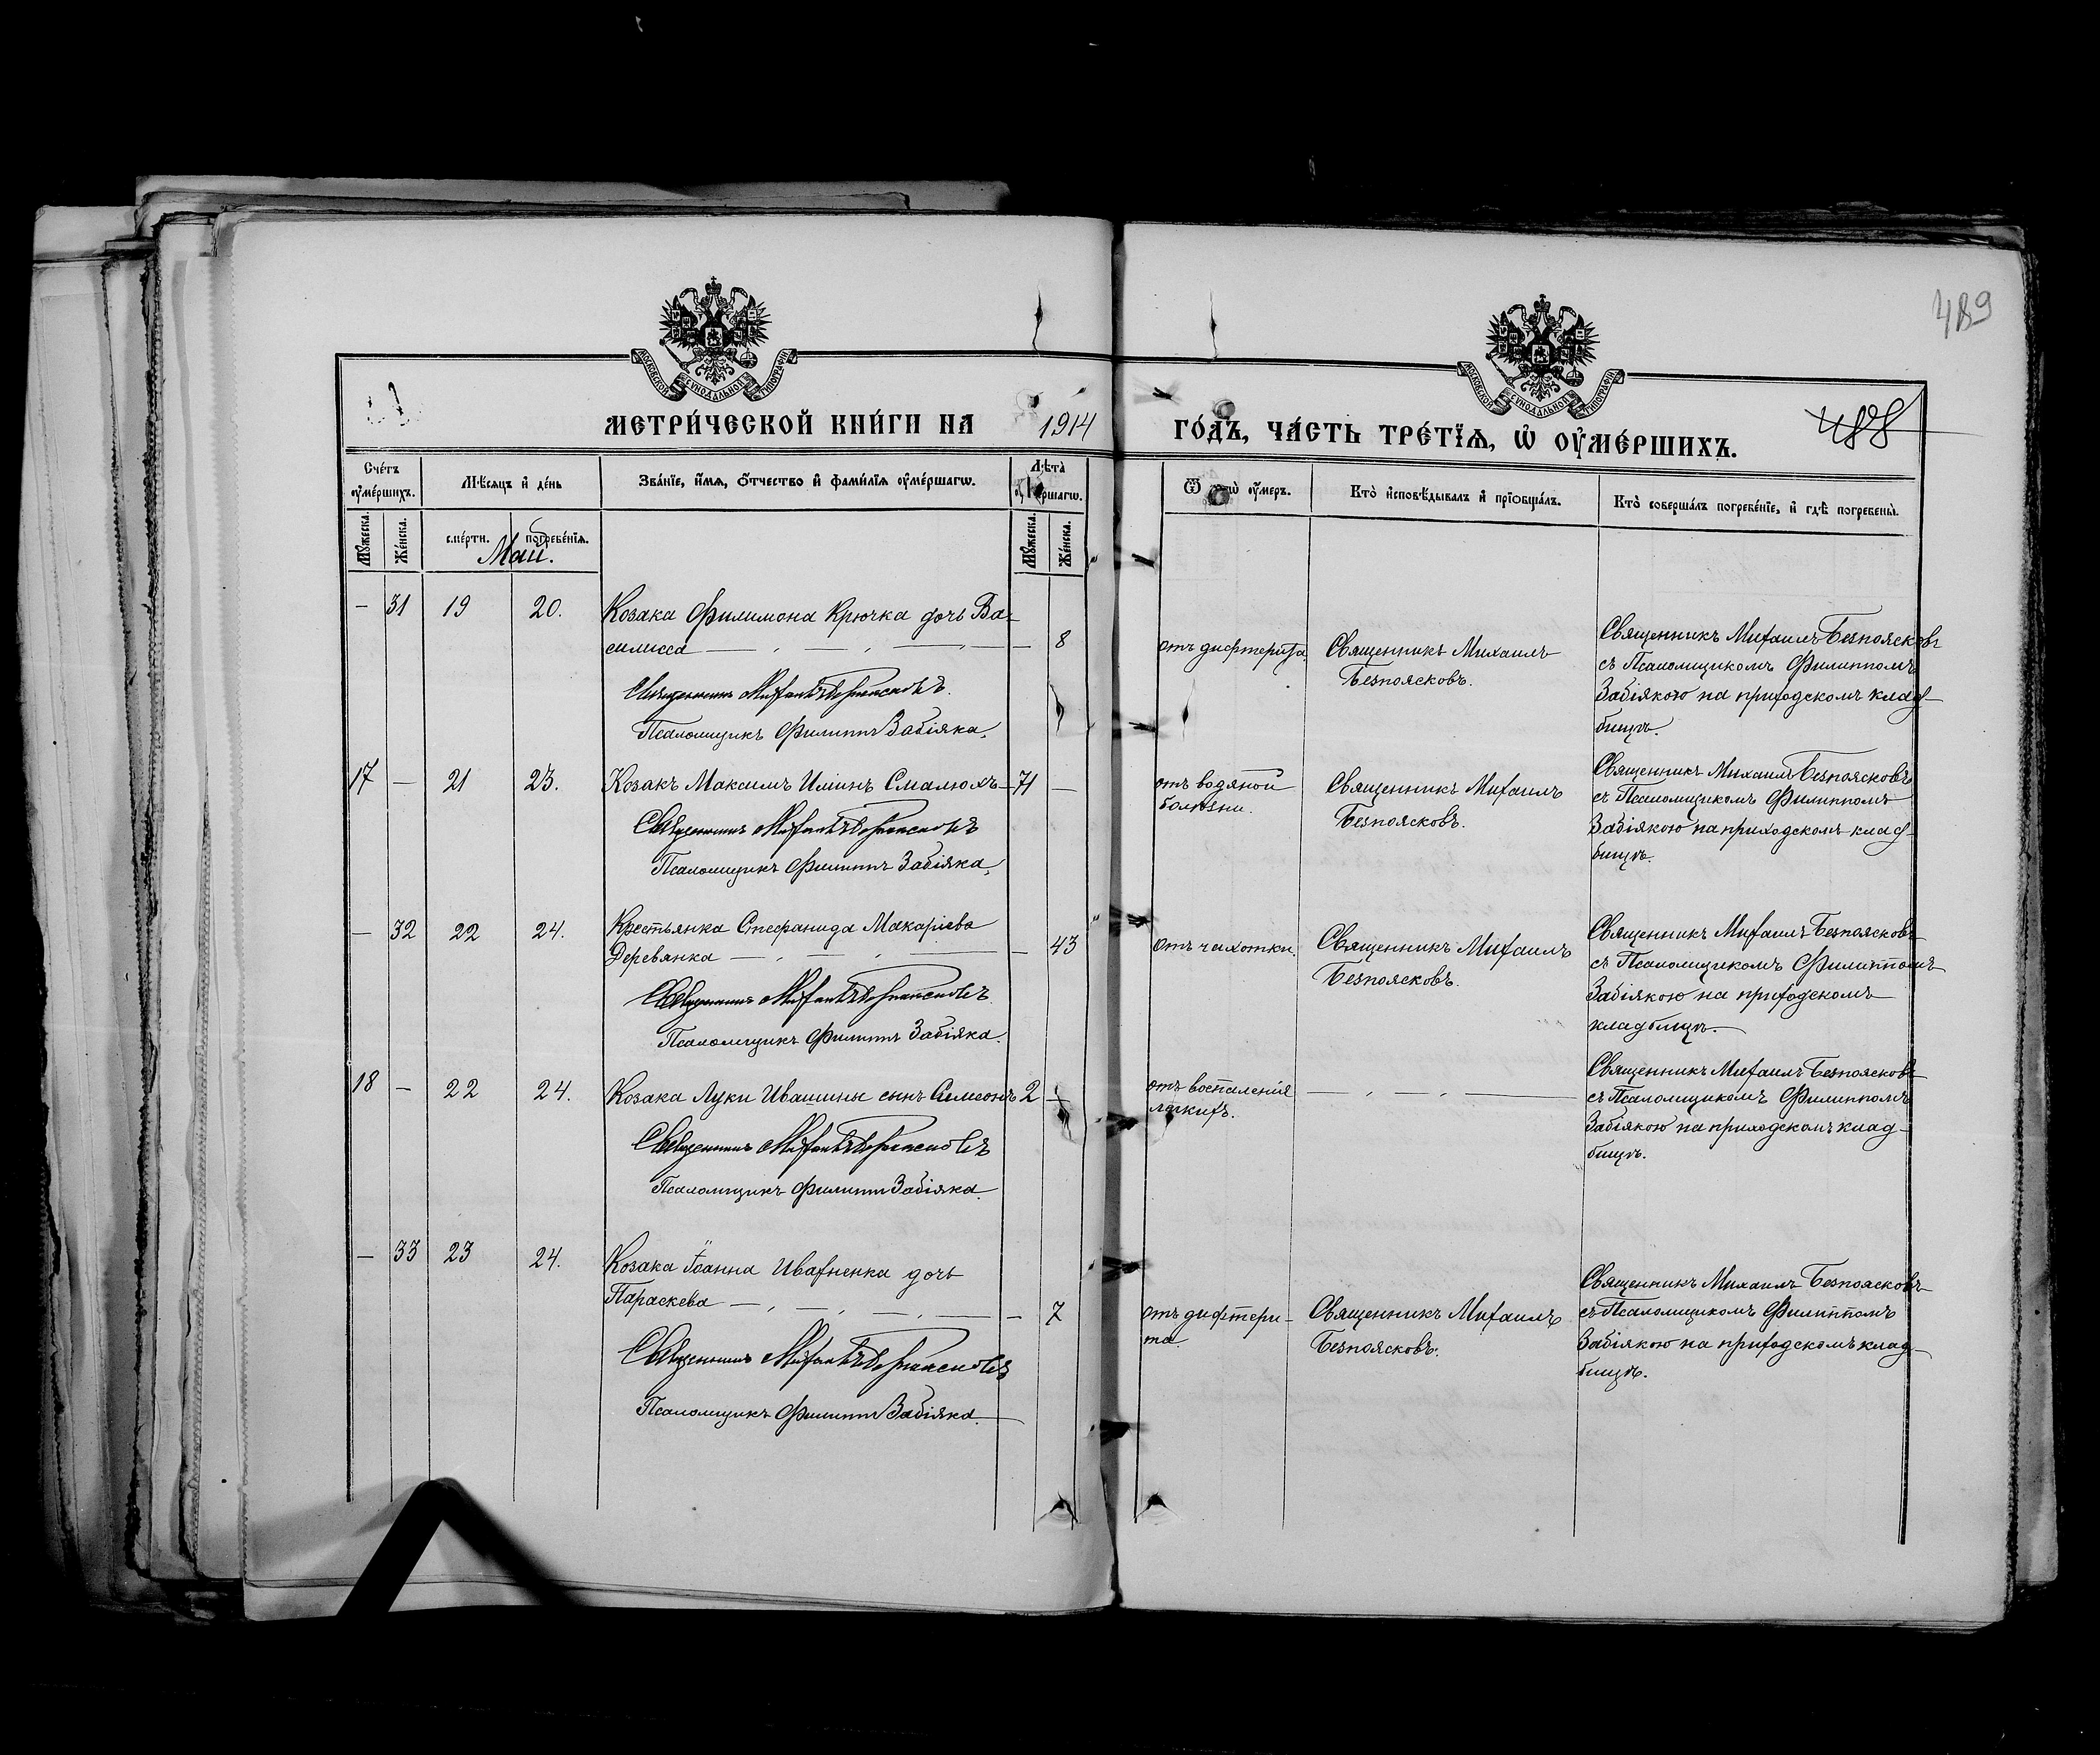 489
МОСКОВСКОЙ СѴНОДАЛЬНОЙ ТИПОГРАФІИ
МОСКОВСКОЙ СѴНОДАЛЬНОЙ ТИПОГРАФІИ
МЕТРИ́ЧЕСКОЙ КНИ́ГИ НА 1914 ГО́ДЪ, ЧА́СТЬ ТРЕ́ТЇѦ, Ѡ҆ ОУ҆МЕ́РШИХЪ.
488
Сче́тъ оу҆ме́ршихъ.
Мѣ́сѧцъ и҆ де́нь
Зва́нїе, и҆́мѧ, ѻ҆́тчество и҆ фами́лїѧ оу҆ме́ршагѡ.
Лѣ́та
Ѿ оу҆́меръ.
Кто̀ и҆сповѣ́дывалъ и҆ прїѻбща́лъ.
Кто̀ соверша́лъ погребе́нїе, и҆ гдѣ̀ погребены̀.
Мꙋ́жеска.
Же́нска.
сме́рти.
погребе́нїѧ.
Мꙋ́жеска.
Же́нска.
Май.
— 31 19 20.
Козака Филимона Крючка дочь Ва-
силисса — 8
Священникъ Михаилъ Безпоясковъ.
Псаломщикъ Филиппъ Забіяка.
отъ дифтерита.
Священникъ Михаилъ
Безпоясковъ.
Священникъ Михаилъ Безпоясковъ
съ Псаломщикомъ Филиппомъ
Забіякою на приходскомъ клад-
бищѣ.
17 — 21 23.
Козакъ Максимъ Иліинъ Смалюхъ — 71 —
Священникъ Михаилъ Безпоясковъ
Псаломщикъ Филиппъ Забіяка.
отъ водяной
болѣзни.
Священникъ Михаилъ
Безпоясковъ.
Священникъ Михаилъ Безпоясковъ
съ Псаломщикомъ Филиппомъ
Забіякою на приходскомъ клад-
бищѣ.
— 32 22 24.
Крестьянка Стефанида Макаріева
Деревянка — 43
Священникъ Михаилъ Безпоясковъ
Псаломщикъ Филиппъ Забіяка.
отъ чахотки.
Священникъ Михаилъ
Безпоясковъ.
Священникъ Михаилъ Безпоясковъ
съ Псаломщикомъ Филиппомъ
Забіякою на приходскомъ
кладбищѣ.
18 — 22 24.
Козака Луки Ивашины сынъ Симеонъ 2 —
Священникъ Михаилъ Безпоясковъ
Псаломщикъ Филиппъ Забіяка.
отъ воспаленія
легкихъ.
Священникъ Михаилъ Безпоясковъ
съ Псаломщикомъ Филиппомъ
Забіякою на приходскомъ клад-
бищѣ.
— 33 23 24.
Козака Іоанна Ивахненка дочь
Параскева — 7
Священникъ Михаилъ Безпоясковъ
Псаломщикъ Филиппъ Забіяка.
отъ дифтери-
та.
Священникъ Михаилъ
Безпоясковъ.
Священникъ Михаилъ Безпоясковъ
съ Псаломщикомъ Филиппомъ
Забіякою на приходскомъ клад-
бищѣ.